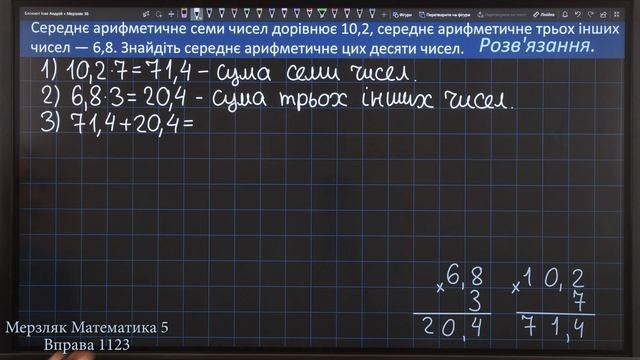 Блокнот Ігоя Андрій » Мерзляк 36
Фігури
Перетворити на фігури
Перетворити на текст
Лінійка
Середнє арифметичне семи чисел дорівнює 10,2, середнє арифметичне трьох інших
чисел — 6,8. Знайдіть середнє арифметичне цих десяти чисел. Розв'язання.
1) 10,2·7=71,4 - сума семи чисел.
2) 6,8·3=20,4 - сума трьох інших чисел.
3) 71,4+20,4=
6,8
× 3
20,4
10,2
× 7
71,4
Мерзляк Математика 5
Вправа 1123